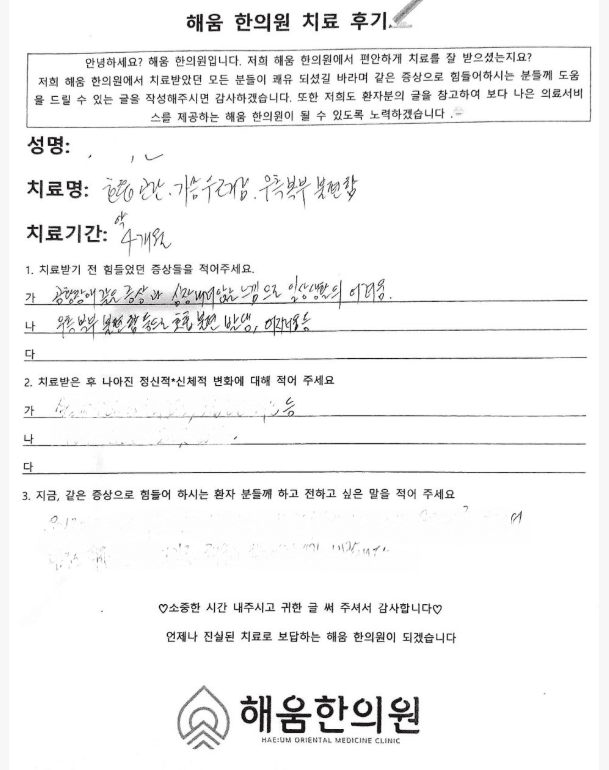 해움 한의원 치료 후기
안녕하세요? 해움 한의원입니다. 저희 해움 한의원에서 편안하게 치료를 잘 받으셨는지요?
저희 해움 한의원에서 치료받았던 모든 분들이 쾌유 되셨길 바라며 같은 증상으로 힘들어하시는 분들께 도움
을 드릴 수 있는 글을 작성해주시면 감사하겠습니다. 또한 저희도 환자분의 글을 참고하여 보다 나은 의료서비
스를 제공하는 해움 한의원이 될 수 있도록 노력하겠습니다.
성명:
치료명: 호흡곤란. 가슴두근거림. 우측복부 불편함
치료기간: 약 4개월
1. 치료받기 전 힘들었던 증상들을 적어주세요.
가 공황장애 같은 증상과 심장 내려앉는 느낌으로 일상생활의 어려움.
나 우측복부 불편함 등으로 호흡 불편 발생, 어지러움 등
다
2. 치료받은 후 나아진 정신적*신체적 변화에 대해 적어 주세요
가 등
나
다
3. 지금, 같은 증상으로 힘들어 하시는 환자 분들께 하고 전하고 싶은 말을 적어 주세요
♡소중한 시간 내주시고 귀한 글 써 주셔서 감사합니다♡
언제나 진실된 치료로 보답하는 해움 한의원이 되겠습니다
해움한의원
HAE:UM ORIENTAL MEDICINE CLINIC